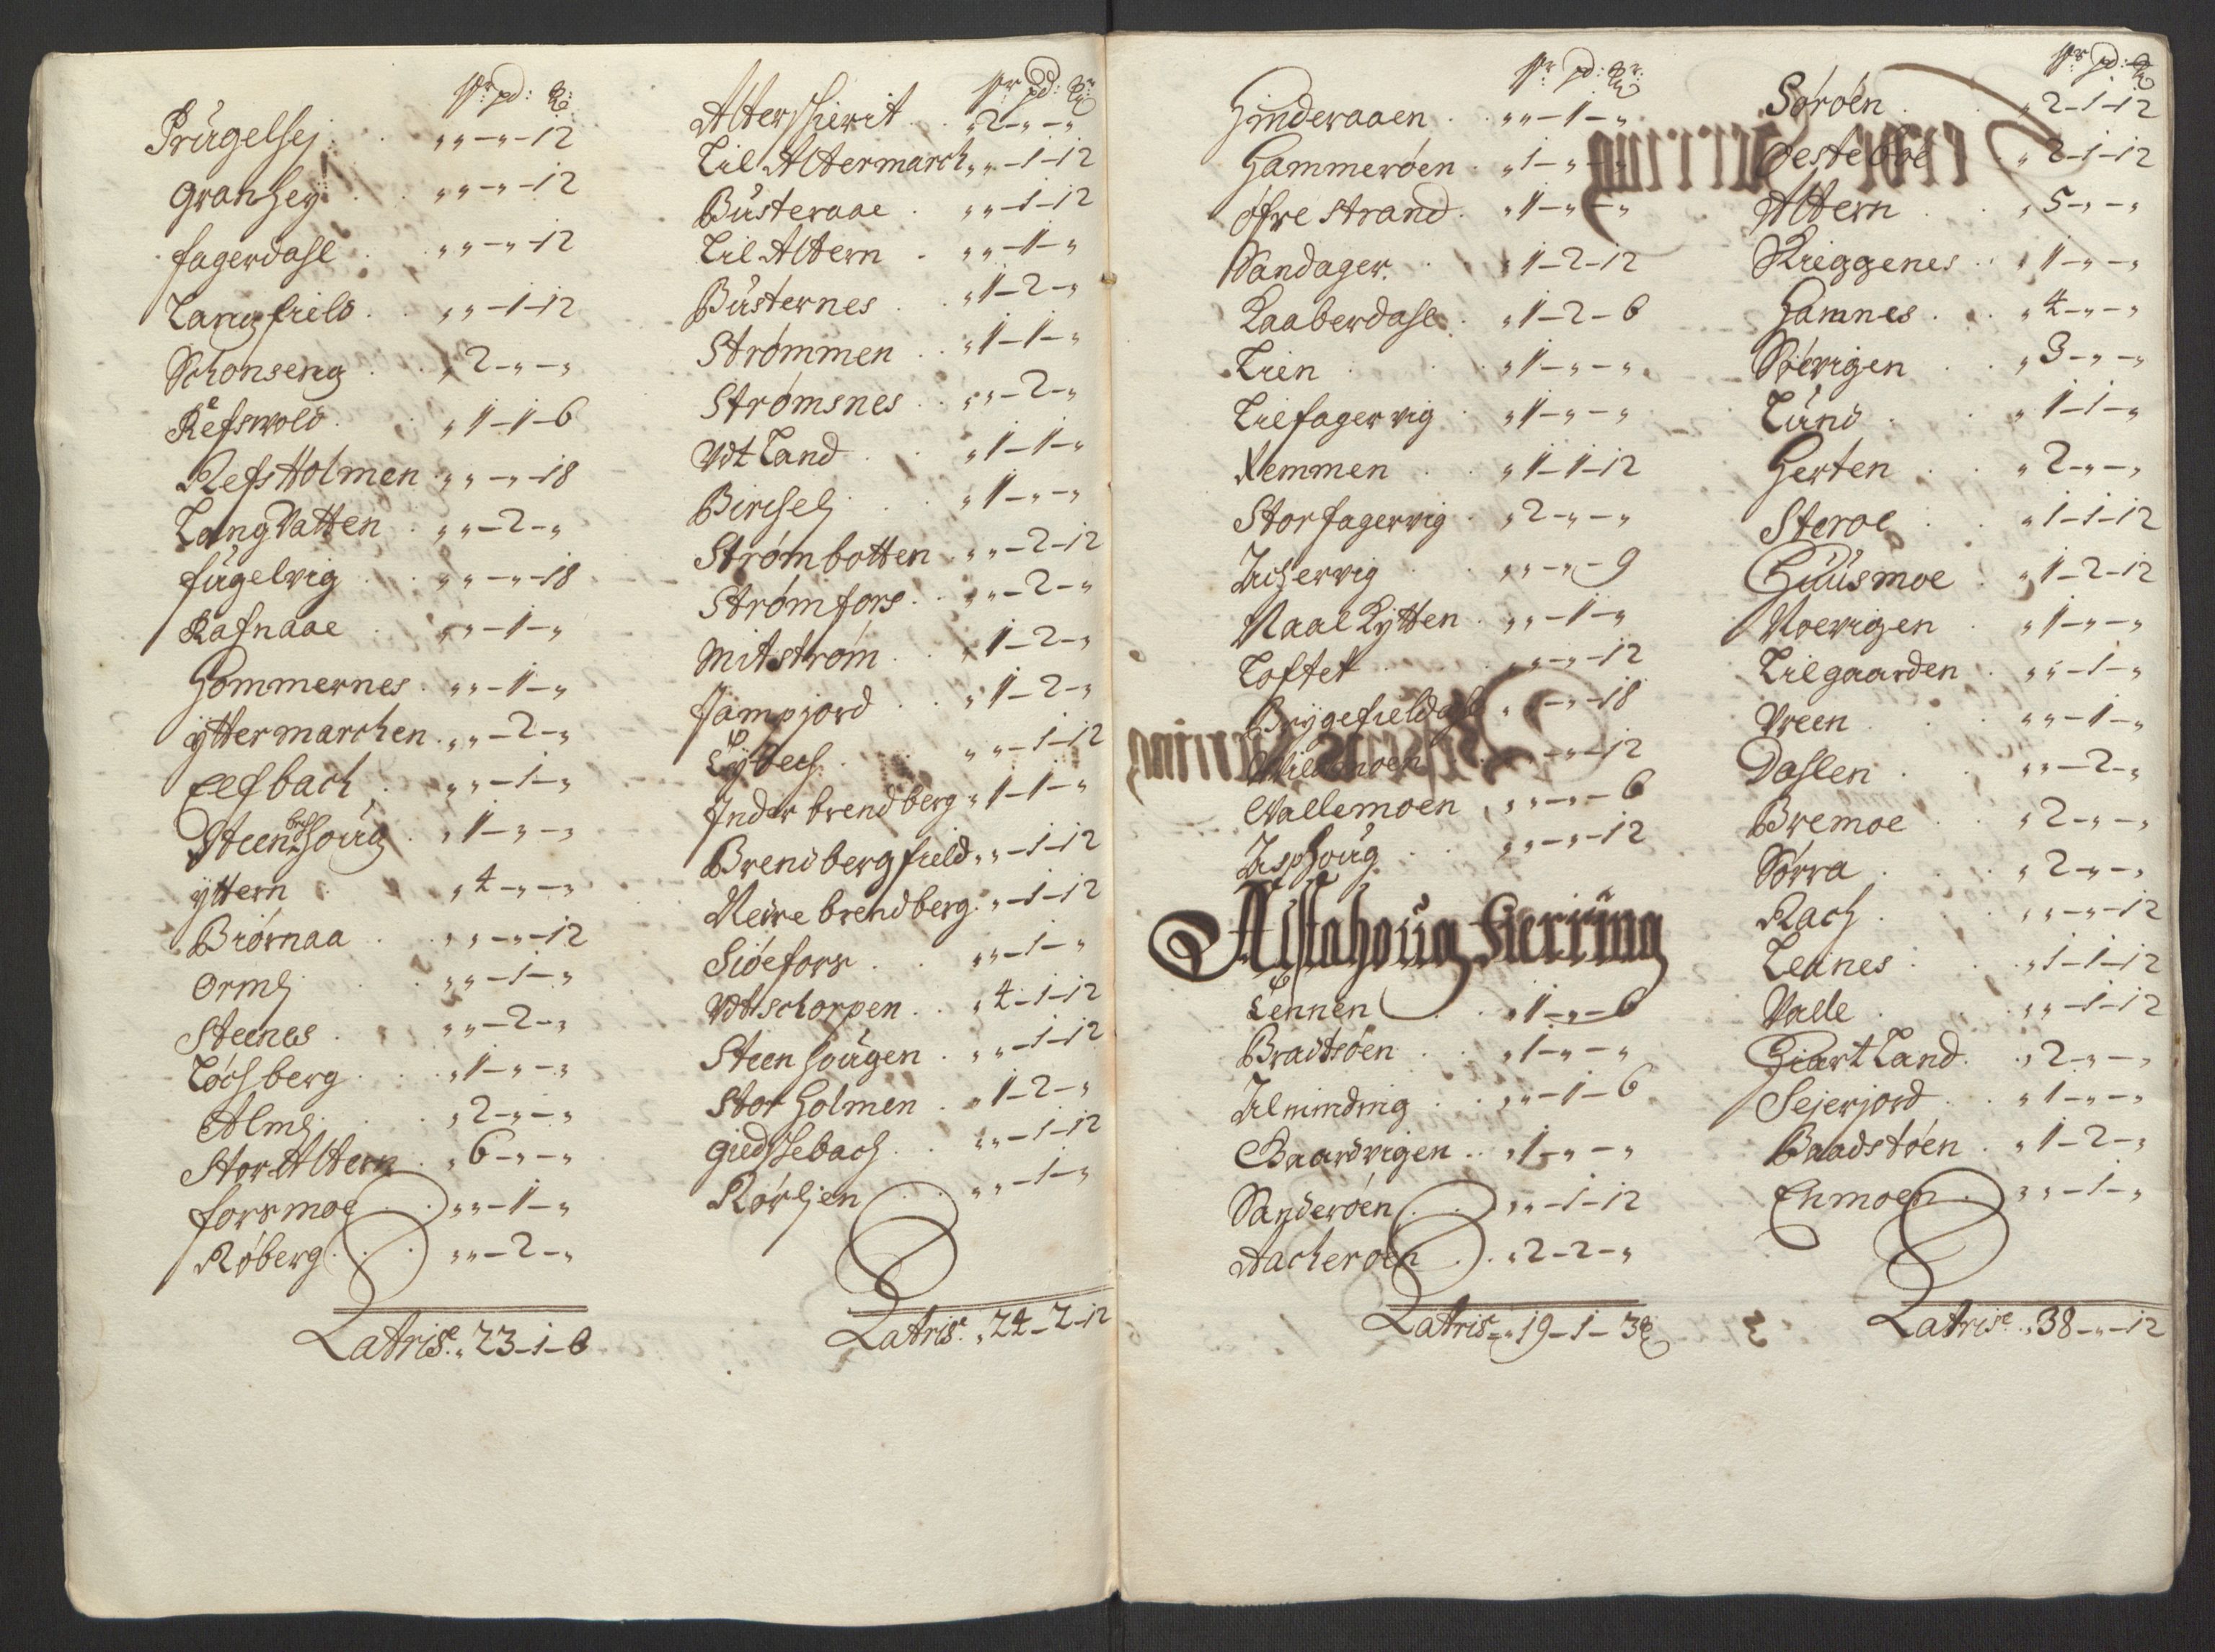 Prügelhej . . „ „ - „ - 12
Granhey . . „ „ - „ - 12
fagerdahl . . „ „ - „ - 12
Langfield . . „ „ - 1 - 12
Schonseng . . „ 2 - „ - „
Refswold . . „ 1 - 1 - 6
Refs Holmen „ „ - „ - 18
Lang Vatten . „ „ - 2 - „
fügelvig . . „ „ - „ - 18
Rafnaae . . „ „ - 1 - „
Hommernes . „ „ - 1 - „
yttermarchen . „ „ - 2 - „
Elfbach . „ „ - 1 - „
Steenbechhoüg . „ 1 - „ - „
yttern . . „ 4 - „ - „
Biørnaa . . „ „ - „ - 12
Ormlj . . „ „ - 1 - „
Steenes . . „ „ - 2 - „
Løchberg . . „ 1 - „ - „
Almlj . . „ 2 - „ - „
Stor Altern . „ 6 - „ - „
forsmoe . . „ „ - 1 - „
Røberg . . . „ „ - 2 - „
Latris.e „ 23 - 1 - 6
Alterschierit . . „ 2 - „ - „
Lil Altermarch „ „ - 1 - 12
Büsteraae . „ „ - 1 - 12
Lil Altern . „ „ - 1 - „
Büsternes . „ 1 - 2 - „
Strømmen . . „ 1 - 1 - „
Strømsnes . . „ „ - 2 - „
Vdt Land . . „ 1 - 1 - „
Birchelj . . „ 1 - „ - „
Strømbotten . „ „ - 2 - 12
Strømfors . . „ „ - 2 - „
Mitstrøm . . „ 1 - 2 - „
Jampjord . . „ 1 - 2 - „
Lybech . . „ „ - 1 - 12
Inder brendberg „ 1 - 1 - „
Brendbergfield „ „ - 1 - 12
Neire brendberg . „ - 1 - 12
Siøefors . . „ „ - 1 - „
Vdtschorpen . . „ 4 - 1 - 12
Steenhoügen . „ „ - 1 - 12
Storholmen . „ 1 - 2 - „
Giedschebach . . „ „ - 1 - 12
Rørljen . . „ „ - 1 - „
Latris.e „ 24 - 2 - 12
Hinderaaen . . „ „ - 1 - „
Hammerøen . „ 1 - „ - „
øfre strand . „ 1 - „ - „
Sandager . . „ 1 - 2 - 12
Kaaberdahl . „ 1 - 2 - 6
Lien . . „ 1 - „ - „
Lilfagervig . „ 1 - „ - „
Nemmen . . „ 1 - 1 - 12
Storfagervig . „ 2 - „ - „
Achervig . . „ „ - „ - 9
Naal Kytten . „ „ - 1 - „
Loftet . . „ „ - „ - 12
Brygefieldahl „ „ - „ - 18
„ „ - „ - 12
Vallemoen „ „ - „ - 6
Asphoüg . . „ „ - „ - 12
Alstahoüg Fierring
Tennen . . „ 1 - „ - 6
Bradtsøen . . „ 1 - „ - „
Alminding . . „ „ - 1 - 6
Baardvigen . . „ 1 - „ - „
Sanderøen . . „ „ - 1 - 12
Aacherøen . . „ 2 - 2 - „
Latris.e „ 19 - 1 - 3
Sørøen . . „ 2 - 1 - 12
Oestebøe . . „ 2 - 1 - 12
Altern . . „ 5 - „ - „
Skieggenes . . „ 1 - „ - „
Hamnes . . „ 4 - „ - „
Søevigen . . „ 3 - „ - „
Lünd . . „ 1 - 1 - „
Herten . . „ 2 - „ - „
Steroe . . „ 1 - 1 - 12
Huüsmoe . „ 1 - 2 - 12
Noevigen . „ 1 - „ - „
Lilgaarden . „ „ - 1 - „
Vreen . . „ „ - 1 - „
Dahlen . . „ „ - 2 - „
Bremoe . . „ 2 - „ - „
Sørra . . „ 2 - „ - „
Rach . . „ „ - „ - 12
Leines . . „ 1 - 1 - 12
Valle . . „ „ - 1 - 12
Hiart Land . „ 2 - „ - „
Sejerjord . . „ 1 - „ - „
Baadstøen . „ 1 - 2 - „
Enmoen . „ „ - 1 - „
Latris.e „ 38 - „ - 12